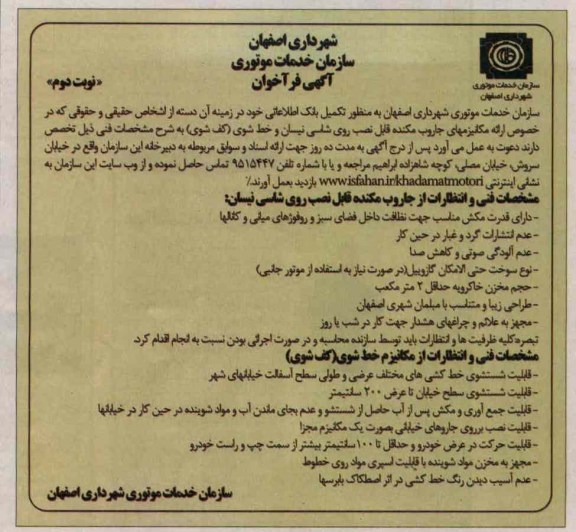 شهرداری اصفهان
سازمان خدمات موتوری
آگهی فرآخوان
«نوبت دوم»
سازمان خدمات موتوری
شهرداری اصفهان
سازمان خدمات موتوری شهرداری اصفهان به منظور تکمیل بانک اطلاعاتی خود در زمینه آن دسته از اشخاص حقیقی و حقوقی که در
خصوص ارائه مکانیزمهای جاروب مکنده قابل نصب روی شاسی نیسان و خط شوی (کف شوی) به شرح مشخصات فنی ذیل تخصص
دارند دعوت به عمل می آورد پس از درج آگهی به مدت ده روز جهت ارائه اسناد و سوابق مربوطه به دبیرخانه این سازمان واقع در خیابان
سروش، خیابان مصلی، کوچه شاهزاده ابراهیم مراجعه و یا با شماره تلفن ۹۵۱۵۴۴۷ تماس حاصل نموده و از وب سایت این سازمان به
نشانی اینترنتی www.isfahan.ir/khadamatmotori بازدید بعمل آورند./
مشخصات فنی و انتظارات از جاروب مکنده قابل نصب روی شاسی نیسان:
-دارای قدرت مکش مناسب جهت نظافت داخل فضای سبز و روفوژهای میانی و کانالها
-عدم انتشارات گرد و غبار در حین کار
-عدم آلودگی صوتی و کاهش صدا
-نوع سوخت حتی الامکان گازوییل(در صورت نیاز به استفاده از موتور جانبی)
-حجم مخزن خاکروبه حداقل ۲ متر مکعب
-طراحی زیبا و متناسب با مبلمان شهری اصفهان
-مجهز به علائم و چراغهای هشدار جهت کار در شب یا روز
تبصره:کلیه ظرفیت ها و انتظارات باید توسط سازنده محاسبه و در صورت اجرائی بودن نسبت به انجام اقدام کرد.
مشخصات فنی و انتظارات از مکانیزم خط شوی(کف شوی)
-قابلیت شستشوی خط کشی های مختلف عرضی و طولی سطح آسفالت خیابانهای شهر
-قابلیت شستشوی سطح خیابان تا عرض ۲۰۰ سانتیمتر
-قابلیت جمع آوری و مکش پس از آب حاصل از شستشو و عدم بجای ماندن آب و مواد شوینده در حین کار در خیابانها
-قابلیت نصب برروی جاروهای خیابانی بصورت یک مکانیزم مجزا
-قابلیت حرکت در عرض خودرو و حداقل تا ۱۰۰ سانتیمتر بیشتر از سمت چپ و راست خودرو
-مجهز به مخزن مواد شوینده با قابلیت اسپری مواد روی خطوط
-عدم آسیب دیدن رنگ خط کشی در اثر اصطکاک بابرسها
سازمان خدمات موتوری شهرداری اصفهان